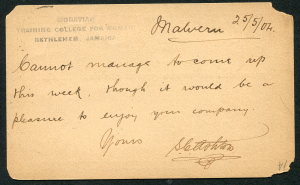 MORAVIAN
TRAINING COLLEGE FOR
BETHLEHEM, JAMAICA
Malvern 25/5/04.
Cannot manage to come up
this week, though it would be a
pleasure to enjoy your company.
Yours